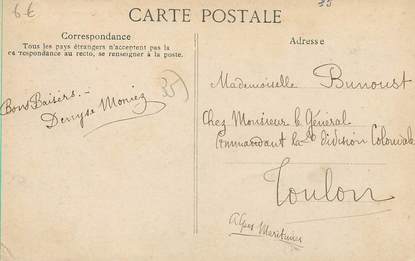 6€
35
CARTE POSTALE
Correspondance
Tous les pays étrangers n'acceptent pas la
correspondance au recto, se renseigner à la poste.
Adresse
Bons Baisers.-
Denyse Moniez
35
Mademoiselle Bunoust
Chez Monsieur le Général
Commandant la 2e division Coloniale
Toulon
Alpes Maritimes